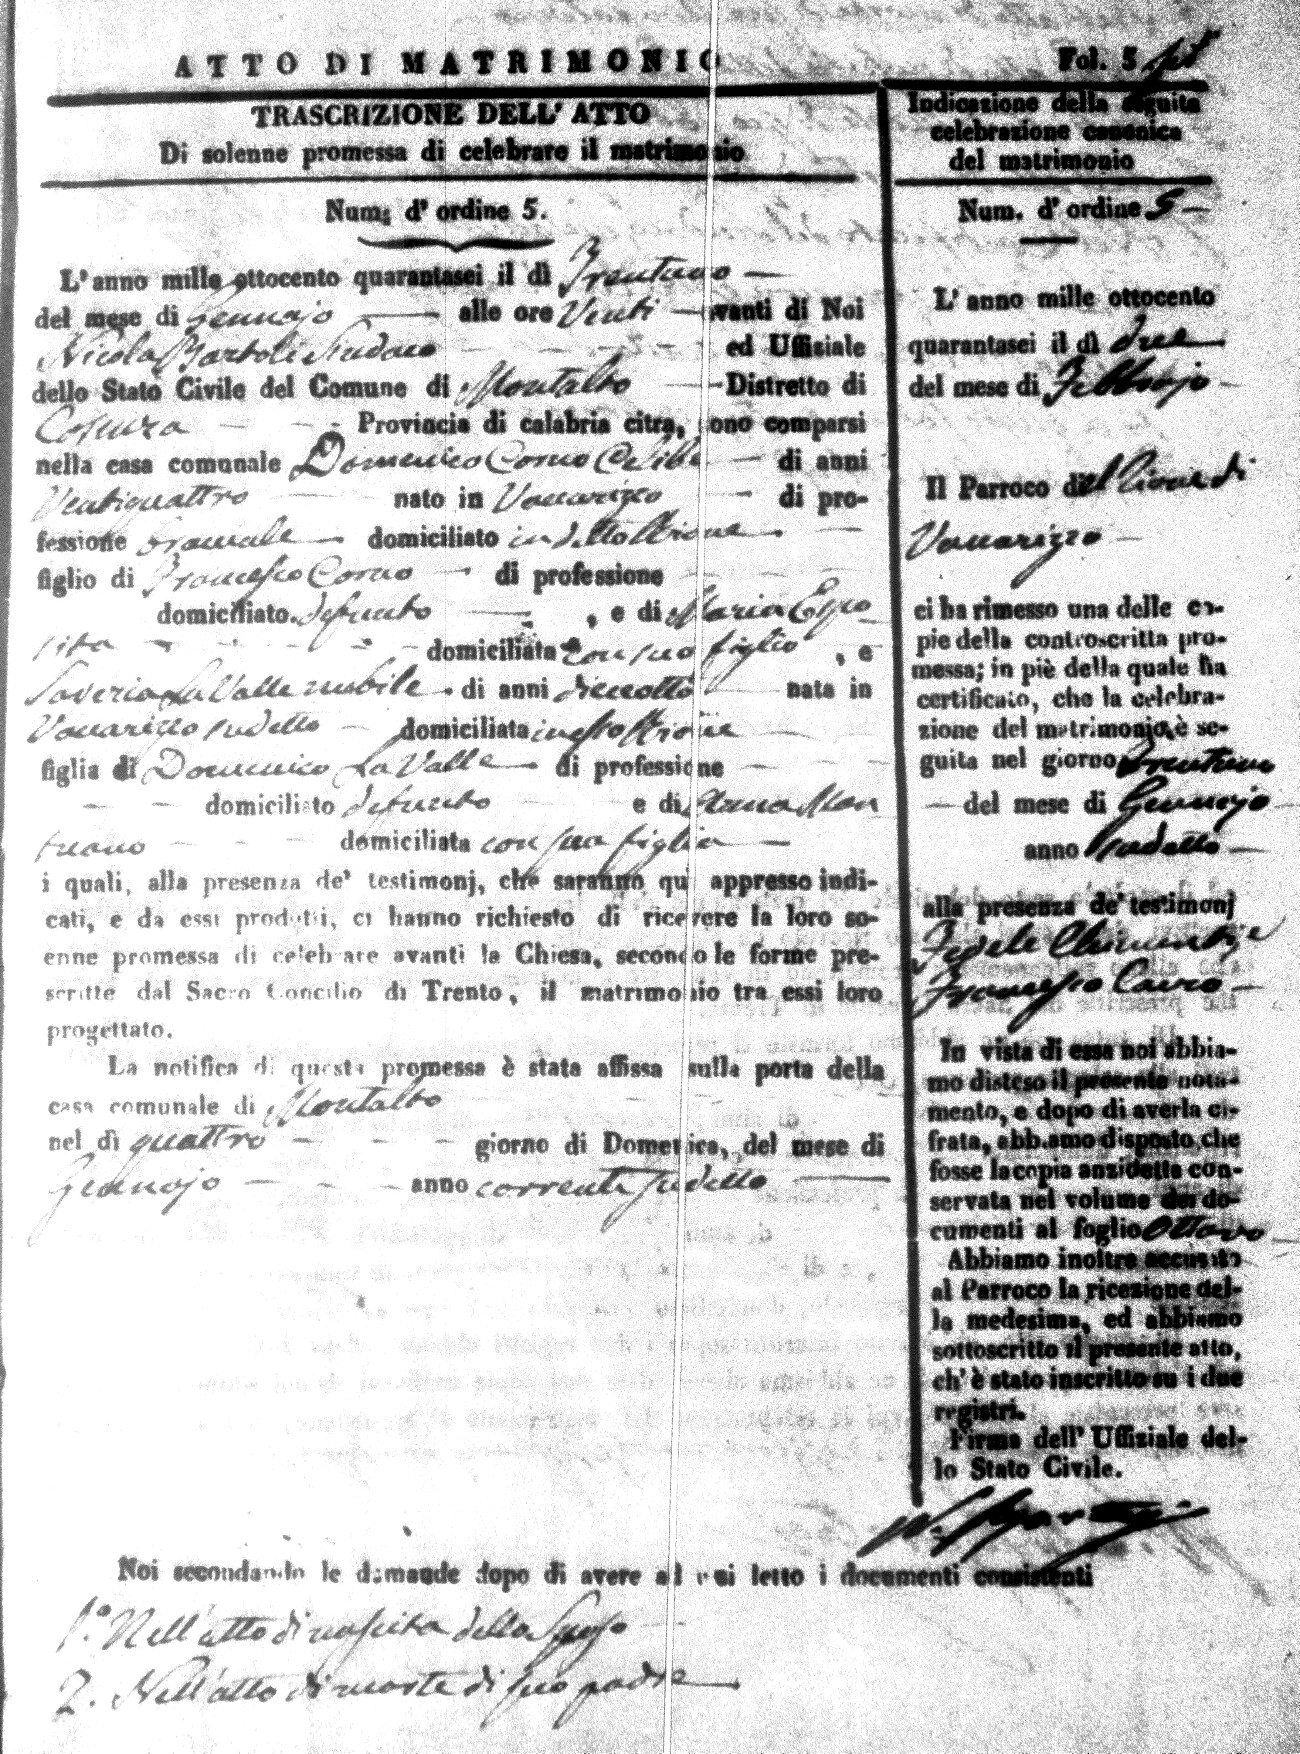 ATTO DI MATRIMONIO
Fol. 5
TRASCRIZIONE DELL' ATTO
Di solenne promessa di celebrare il matrimonio
Num. d' ordine 5.
L' anno mille ottocento quarantasei il dì Trentuno
del mese di Gennajo alle ore Venti avanti di Noi
Nicola Bartoli Sindaco ed Uffiziale
dello Stato Civile del Comune di Montalto Distretto di
Cosenza Provincia di calabria citra, sono comparsi
nella casa comunale Domenico Corno Celibe di anni
Ventiquattro nato in Vaccarizzo di pro-
fessione domiciliato in detto Rione
figlio di Francesco Corno di professione
domiciliato defunto , e di Maria Espo
sita domiciliata con suo figlio , e
Saveria La Valle nubile di anni dieciotto nata in
Vaccarizzo sudetto domiciliata in esto Rione
figlia di Domenico La Valle di professione
domiciliato defunto e di Anna Mon
tuano domiciliata con sua figlia
i quali, alla presenza de' testimonj, che saranno qui appresso indi-
cati, e da essi prodotti, ci hanno richiesto di ricevere la loro so-
enne promessa di celebrare avanti la Chiesa, secondo le forme pre-
scritte dal Sacro Concilio di Trento, il matrimonio tra essi loro
progettato.
La notifica di questa promessa è stata affissa sulla porta della
casa comunale di Montalto
nel dì quattro giorno di Domenica, del mese di
Gennajo anno corrente sudetto
Indicazione della seguita
celebrazione canonica
del matrimonio
Num. d' ordine 5
L' anno mille ottocento
quarantasei il dì due
del mese di Febbrajo
Il Parroco del Rione di
Vaccarizzo
ci ha rimesso una delle co-
pie della controscritta pro-
messa; in piè della quale ha
certificato, che la celebra-
zione del matrimonio è se-
guita nel giorno Trentuno
del mese di Gennajo
anno sudetto
alla presenza de' testimonj
Fedele Clemente, e
Francesco Cairo
In vista di essa noi abbia-
mo disteso il presente nota-
mento, e dopo di averla ci-
frata, abbiamo disposto, che
fosse la copia anzidetta con-
servata nel volume dei do-
cumenti al foglio Ottavo
Abbiamo inoltre accusato
al Parroco la ricezione del-
la medesima, ed abbiamo
sottoscritto il presente atto,
ch' è stato inscritto su i due
registri.
Firma dell' Uffiziale del-
lo Stato Civile.
Noi secondando le domande dopo di avere ad essi letto i documenti consistenti
1.° Nell'atto di nascita dello Sposo
2. Nell'atto di morte di suo padre